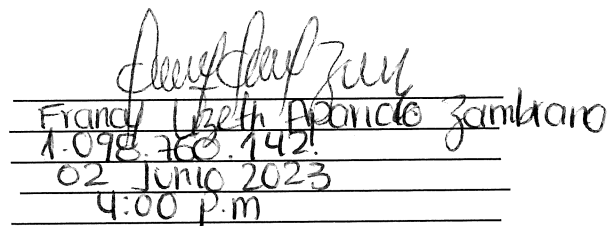 Francy Lizeth Aparicio Zambrano
1.098.760.142.
02 Junio 2023
4:00 p.m